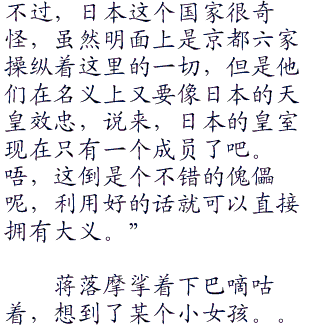 不过，日本这个国家很奇
怪，虽然明面上是京都六家
操纵着这里的一切，但是他
们在名义上又要像日本的天
皇效忠，说来，日本的皇室
现在只有一个成员了吧。
唔，这倒是个不错的傀儡
呢，利用好的话就可以直接
拥有大义。”
蒋落摩挲着下巴嘀咕
着，想到了某个小女孩。。